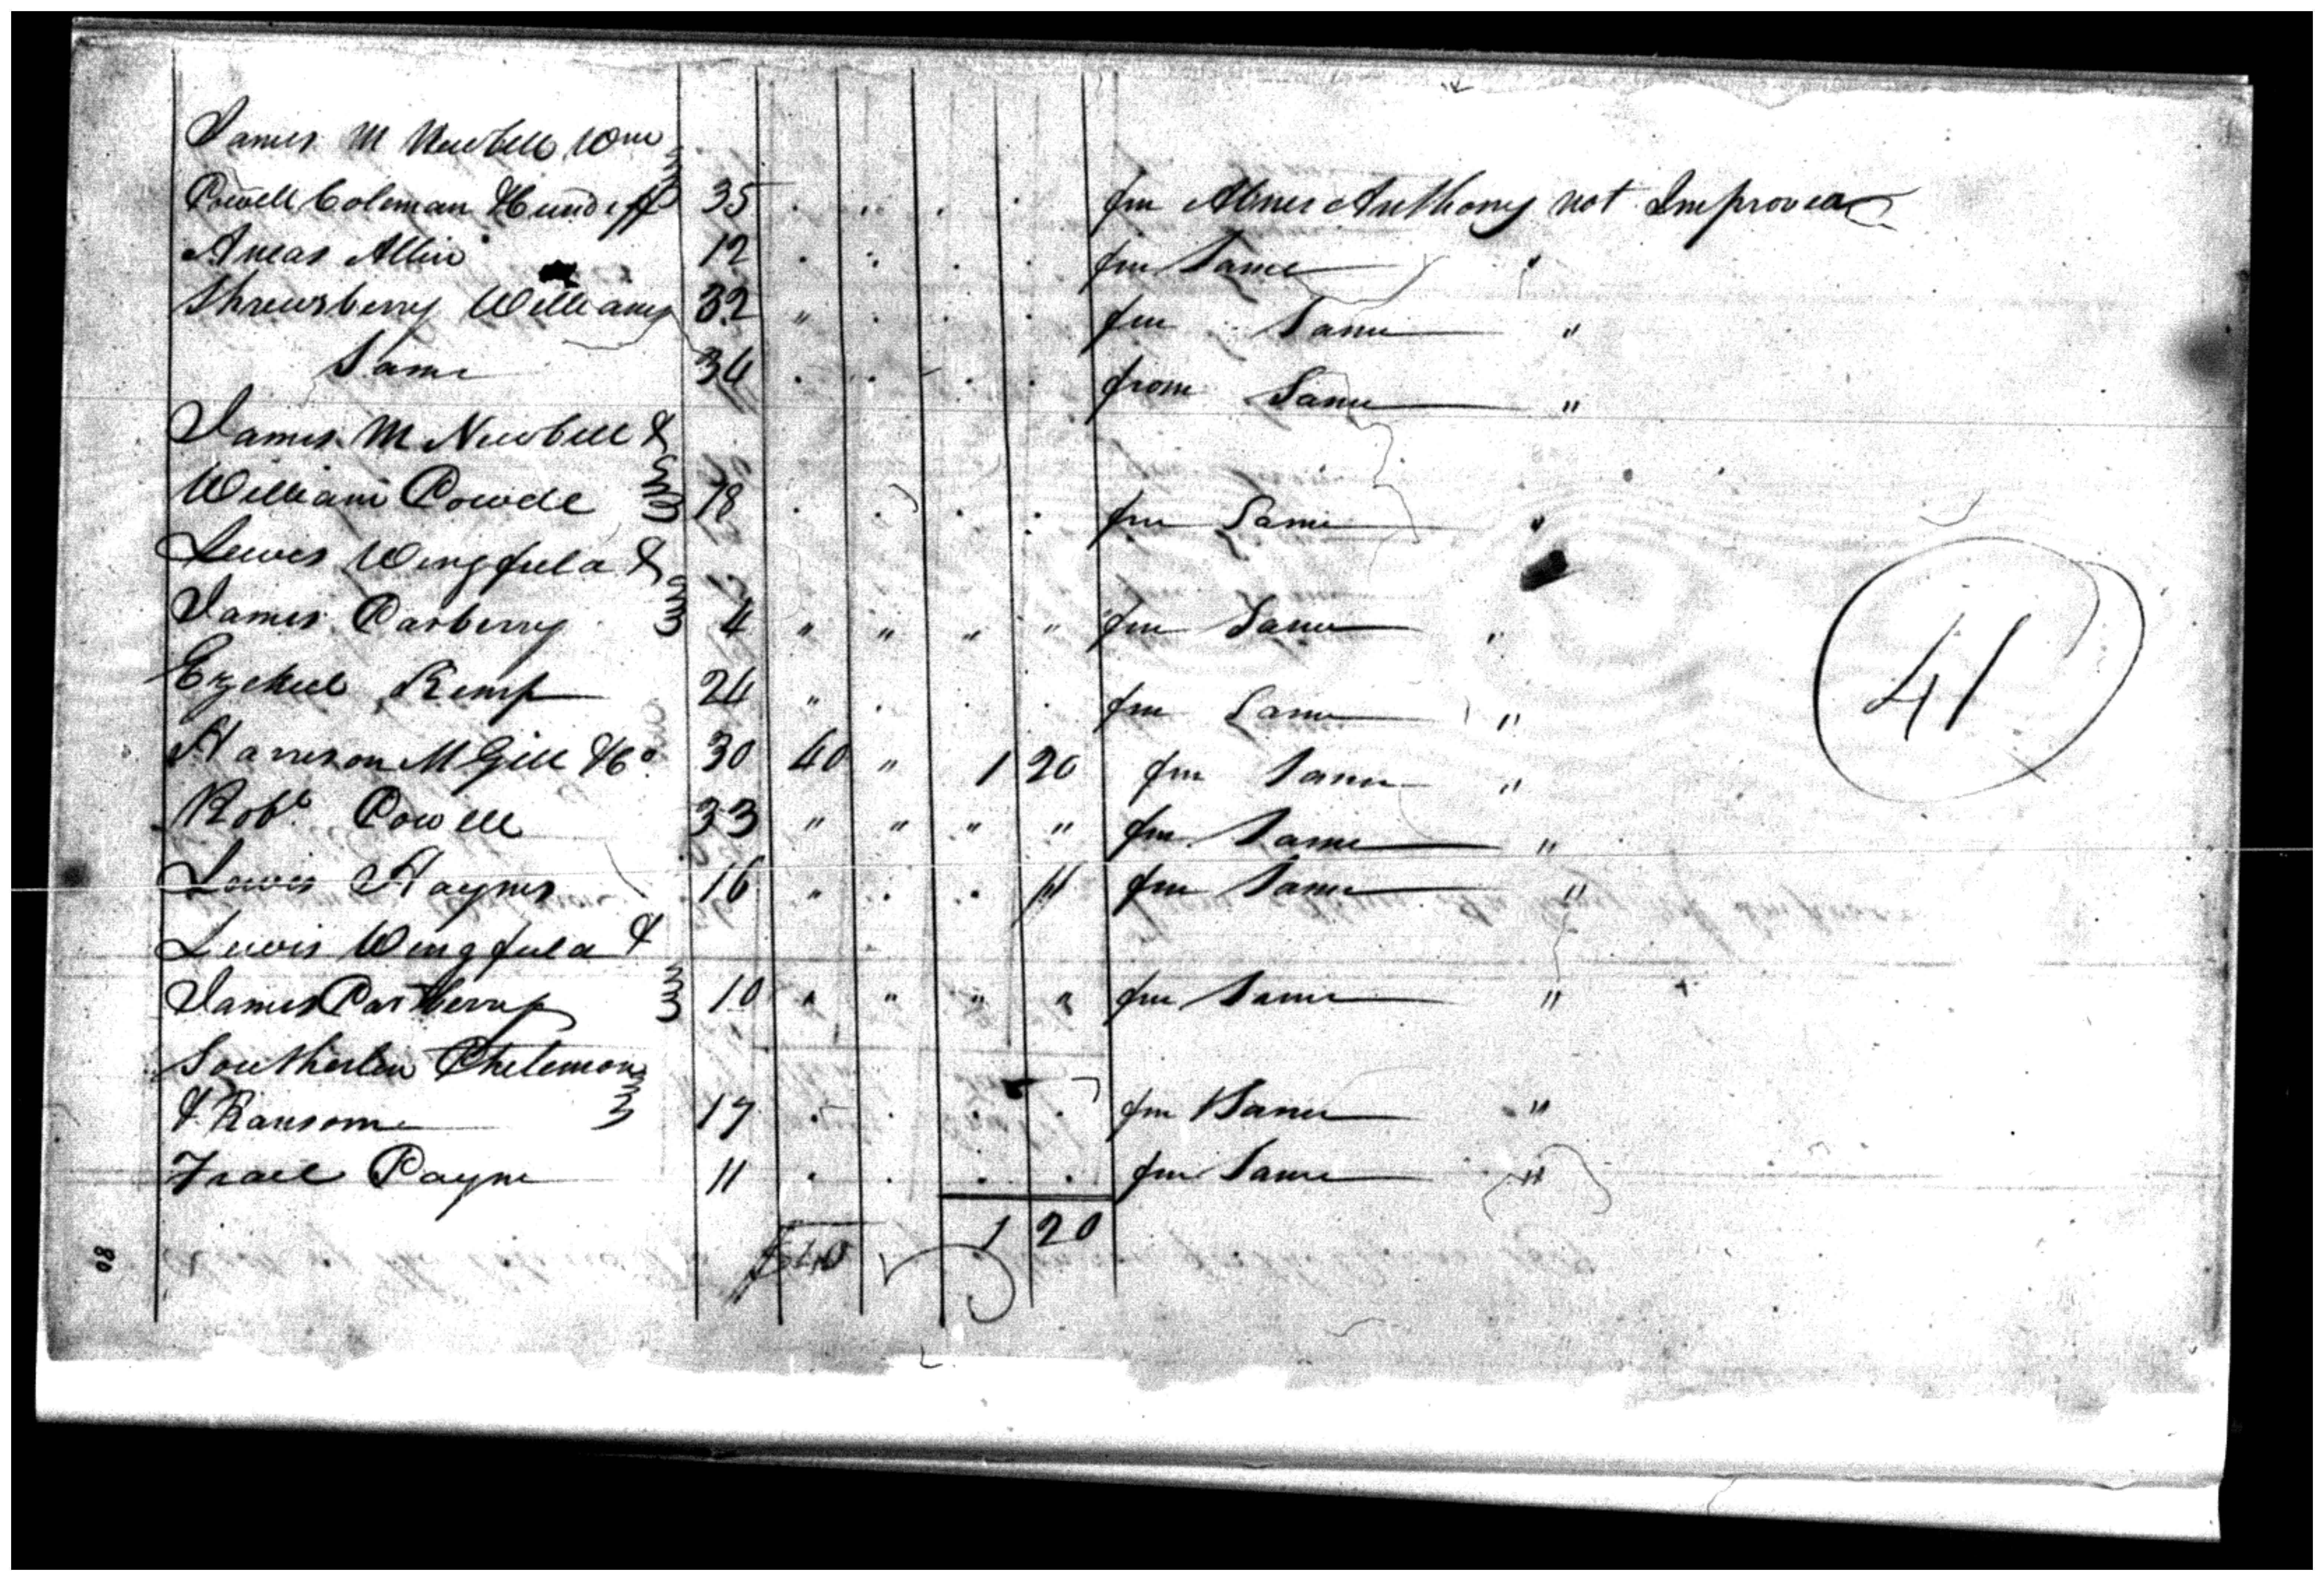 James M Newbell Wm
Powell Coleman & Cundiff 35 . " . . fm Abner Anthony not Improved
Aneas Allin 12 . " . . fm Same "
Shrewsberry Williams 32 " . . . fm Same "
Same 34 . " . . from Same "
James M Newbell &
William Powell 18 . . . . fm Same "
Lewis Wingfield &
James Pasberry 4 " " " " fm Same "
Ezekiel Kemp 24 " . . . fm Same "
Harrison McGill & Co 30 40 " 1 20 fm Same "
Robt Powell 33 " " " " fm Same "
Lewis Haynes 16 " . . " fm Same "
Lewis Wingfield &
James Pasberry 10 " " " " fm Same "
Southerlin Phelemon
& Ransome 17 . . . . fm Same "
Trael Payne 11 . . . . fm Same "
$40 1 20
41
80